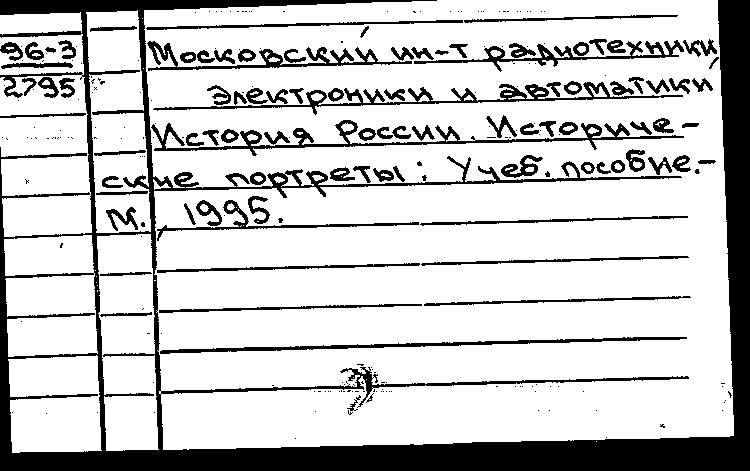 96-3 Московский ин-т радиотехники,
2795 электроники и автоматики
История России. Историче-
ские портреты: Учеб. пособие.-
М., 1995.